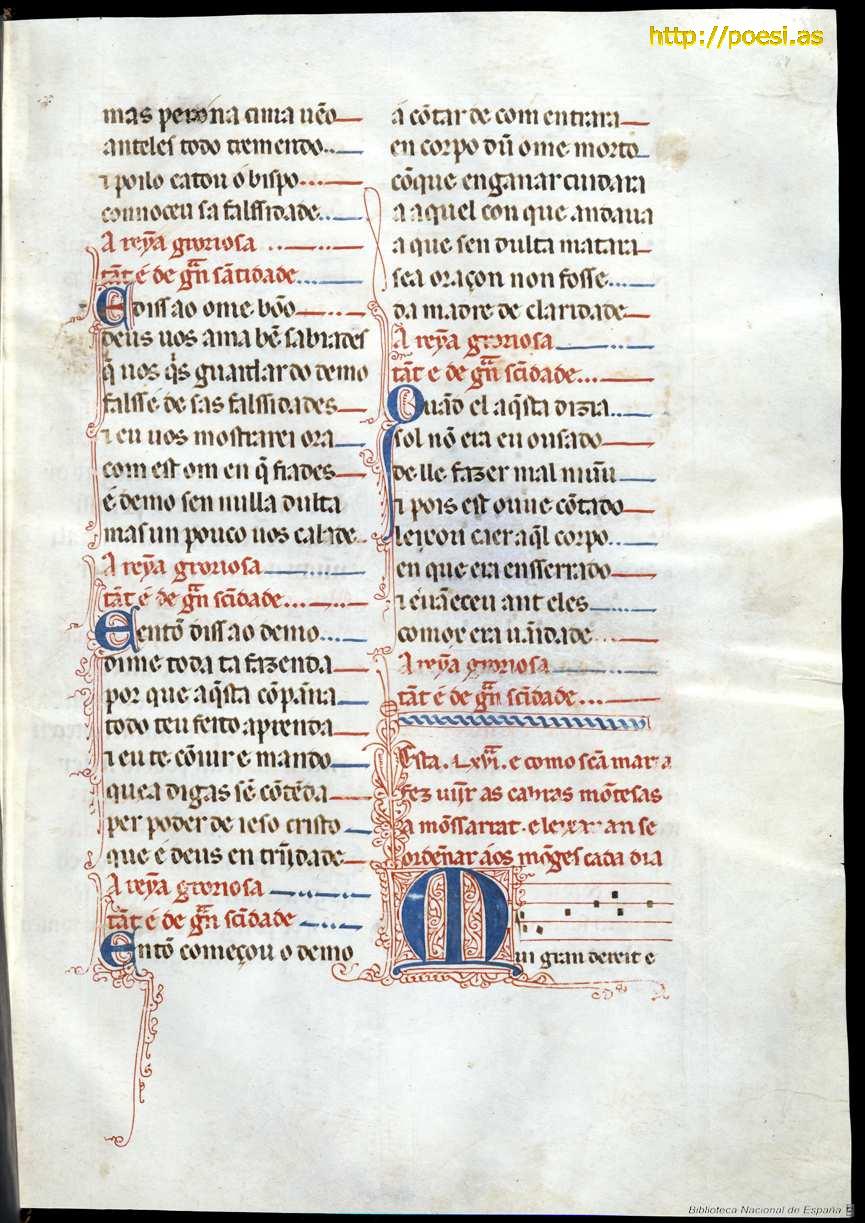 http://poesi.as
mas pero na cima uẽo
anteles todo tremendo
⁊ poilo catou o bispo
connoceu sa falssidade
A reỹa groriosa
tãt é de grã sãtidade
E diss ao ome bõo
deus uos ama bẽ sabiades
q̃ uos q̇s guardar do demo
falsse de sas falssidades
⁊ eu uos mostrarei ora
com est om en q̃ fiades
é demo sen nulla dulta
mas un pouco uos calade
A reỹa groriosa
tãt é de grã scĩdade
Eentõ diss ao demo
dime toda ta fazenda
por que aq̃sta cõpañna
todo teu feito aprenda
⁊ eu te cõiur e mando
que a digas sẽ cõtẽda
per poder de ieso cristo
que é deus en trĩjdade
A reỹa groriosa
tãt é de grã scĩdade
Entõ começou o demo
á cõtar de com entrara
en corpo dũ ome morto
cõque enganar cuidara
a aquel con que andaua
a que sen dulta matara
se a oraçon non fosse
da madre de claridade
A reỹa groriosa
tãt e de grã scĩdade
Quãd el aq̃sta dizia
sol nõ era en ousado
de lle fazer mal niũu
⁊ pois est ouue cõtado
leixou caer aq̃l corpo
en que era ensserrado
⁊ éuãeceu ant eles
como xe era uãidade
A reỹa groriosa
tãt é de grã scĩdade
Esta .Lxvii. e como scã maria
fez uĩjr as cabras mõtesas
a mõssarrat. e leixauan se
ordẽnar áos mõges cada dia
Mui gran dereit e
Biblioteca Nacional de España